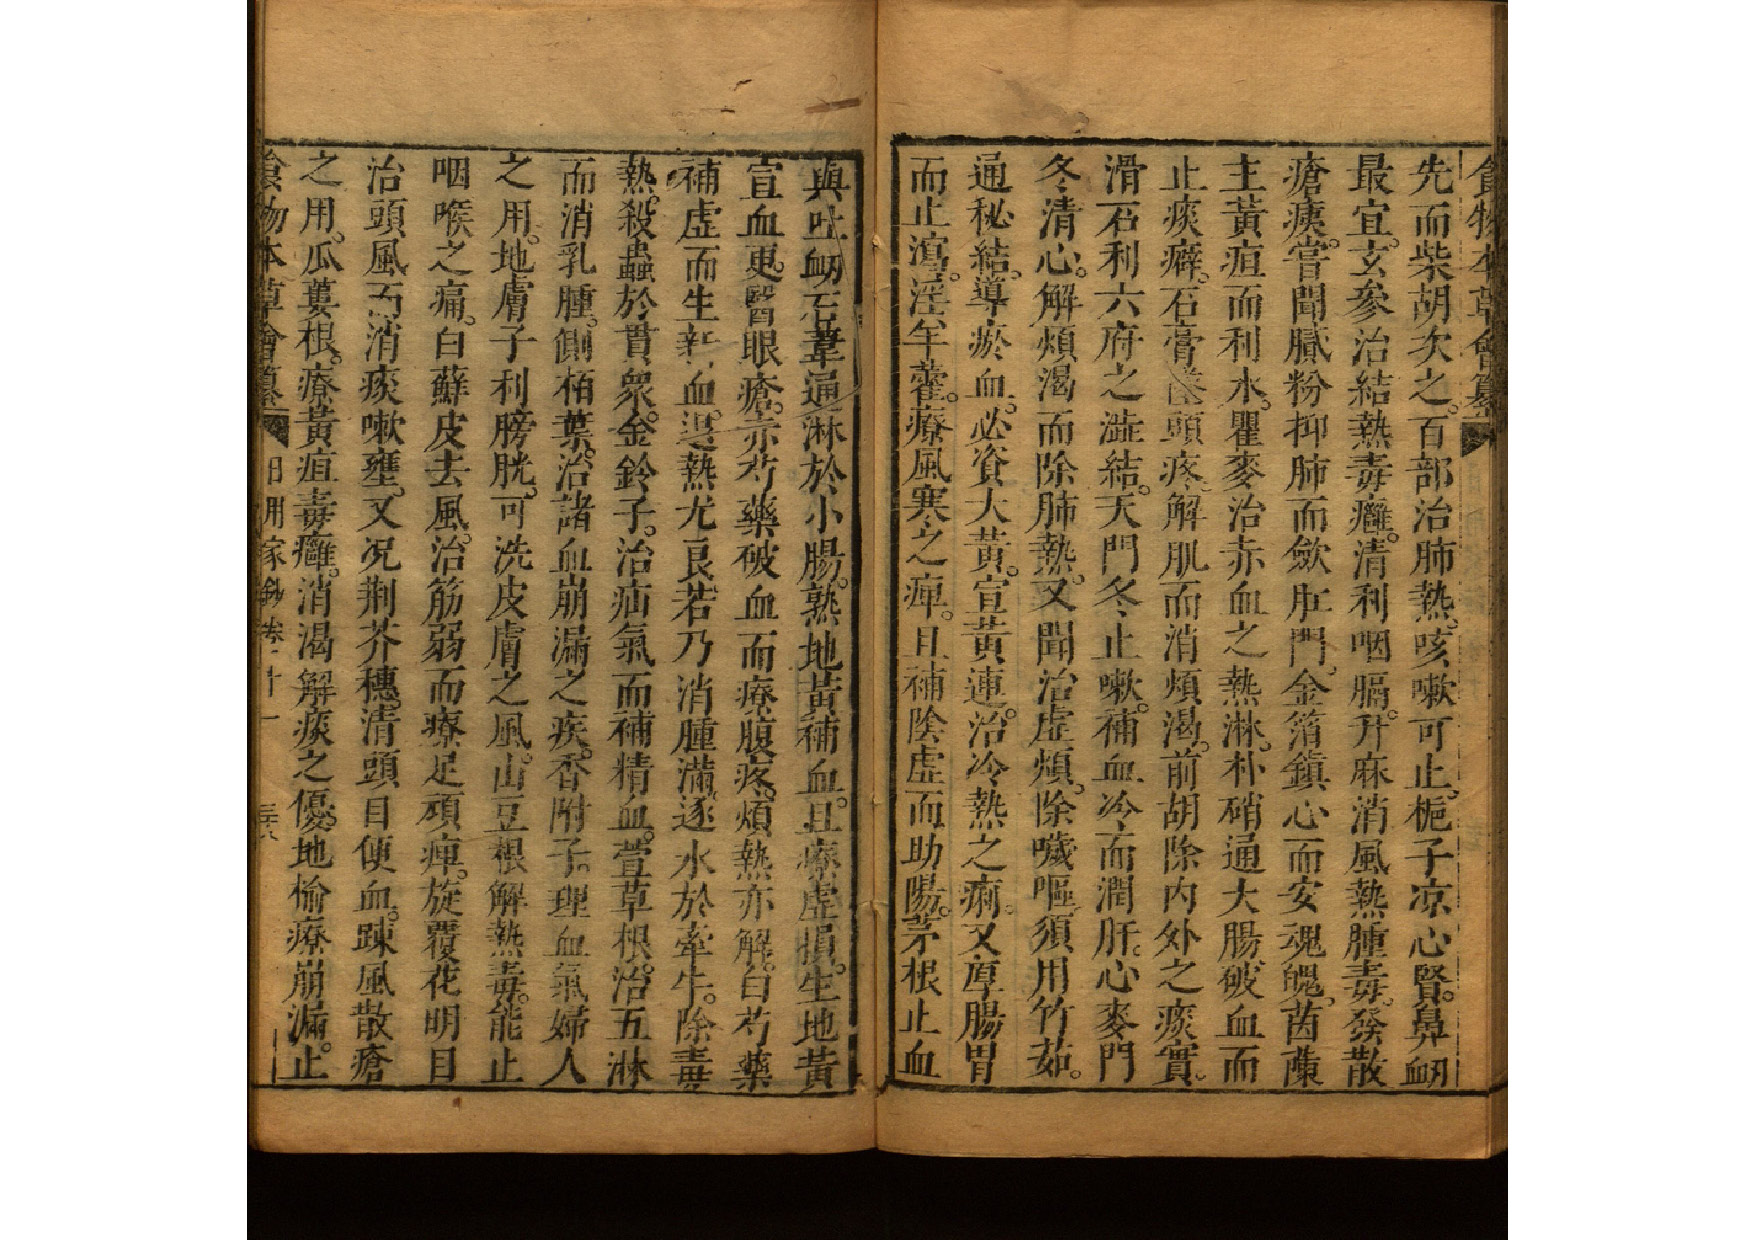 食物本草會纂
先而柴胡次之。百部治肺熱。咳嗽可止。梔子凉心腎。鼻衂
最宜。玄參治結熱毒癰。清利咽膈。升麻消風熱腫毒。發散
瘡痍。嘗聞膩粉抑肺而斂肛門。金箔鎮心而安魂魄。茵蔯
主黃疸而利水。瞿麥治赤血之熱淋。朴硝通大腸破血而
止痰癖。石膏頭疼解肌而消煩渴。前胡除內外之痰實。
滑石利六府之澁結。天門冬止嗽。補血冷而潤肝。心麥門
冬清心。解煩渴而除肺熱。又聞治虛煩。除噦嘔須用竹茹。
通秘結。導瘀血。必資大黃。宣黃連。治冷熱之痢。又厚腸胃
而止瀉。淫羊藿。療風寒之痺。且補陰虛而助陽。茅根止血
與吐衂石葦通淋於小腸。熟地黃補血。且療虛損。生地黃
宣血更。醫眼瘡。赤芍藥破血而療腹疼。煩熱亦解。白芍藥
補虛而生新血。退熱尤良若乃消腫滿逐水於牽牛。除毒
熱。殺蟲於貫衆。金鈴子。治疝氣而補精血。萱草根。治五淋
而消乳腫。側栢葉。治諸血崩漏之疾。香附子。理血氣婦人
之用。地膚子利膀胱。可洗皮膚之風。山豆根解熱毒。能止
咽喉之痛。白蘚皮去風。治筋弱而療足頑痺。旋覆花明目
治頭風而消痰嗽壅。又况荆芥穗。清頭目便血。踈風散瘡
之用。瓜蔞根。療黃疸毒癰。消渴解痰之憂。地榆療崩漏。止
食物本草會纂 日用家鈔卷十一 三十八